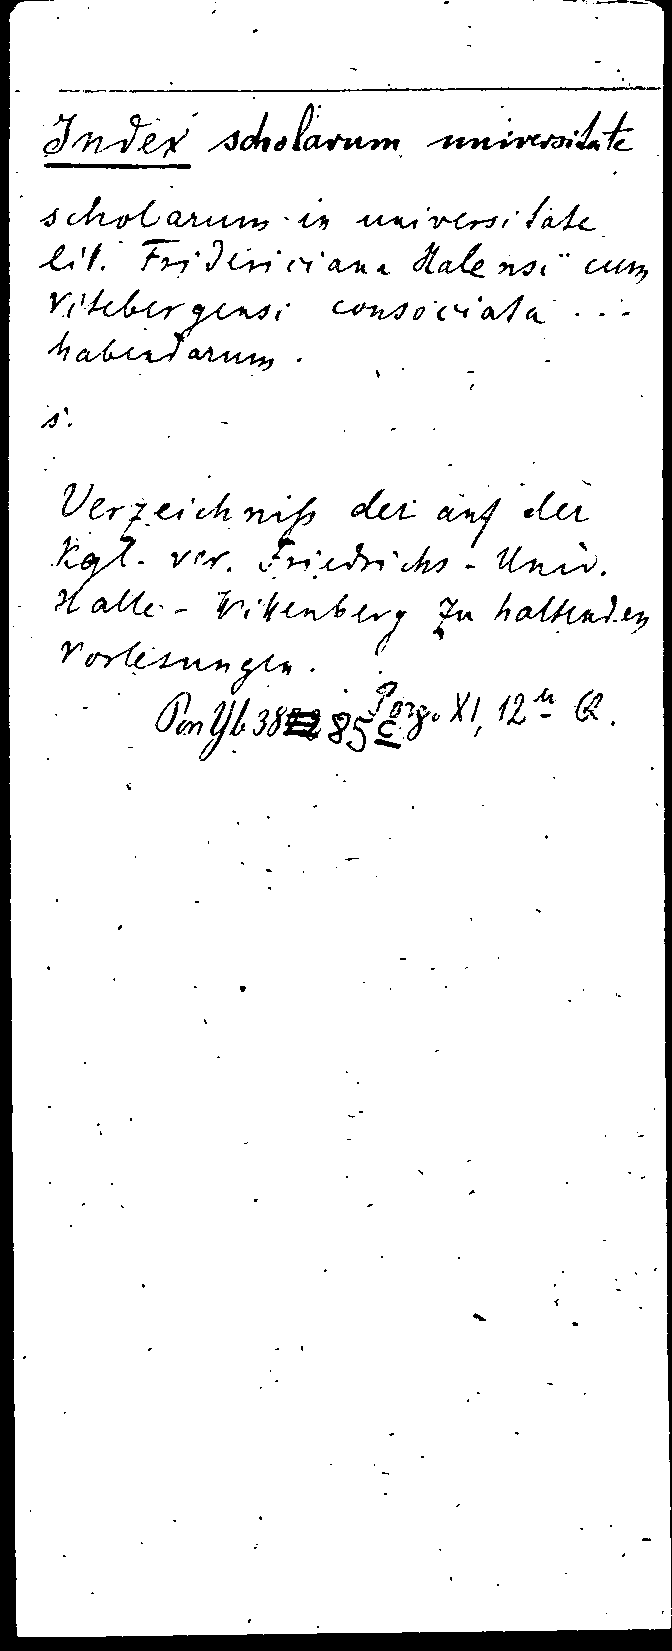 Index scholarum universitate
scholarum in universitate
lit. Fridericiana Halensi cum
Vitebergensi consociata ...
habendarum.
s.
Verzeichniß der auf der
Kgl. ver. Friedrichs-Univ.
Halle-Wittenberg zu haltenden
Vorlesungen.
Pon Yb 38 85 c XI, 12